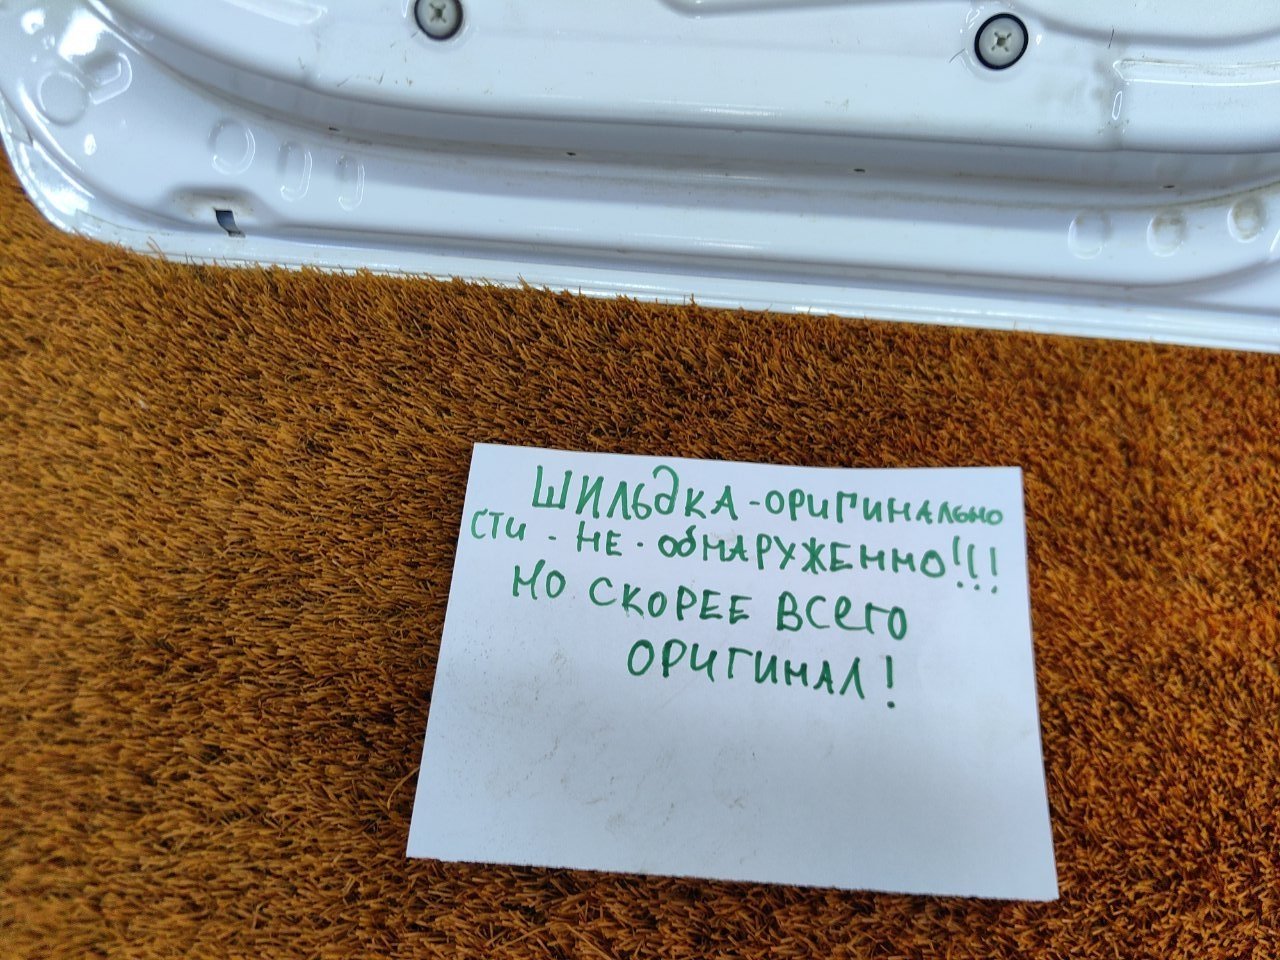 ШИЛЬДКА-ОРИГИНАЛЬНО
СТИ - НЕ - ОБНАРУЖЕННО!!!
НО СКОРЕЕ ВСЕГО
ОРИГИНАЛ!